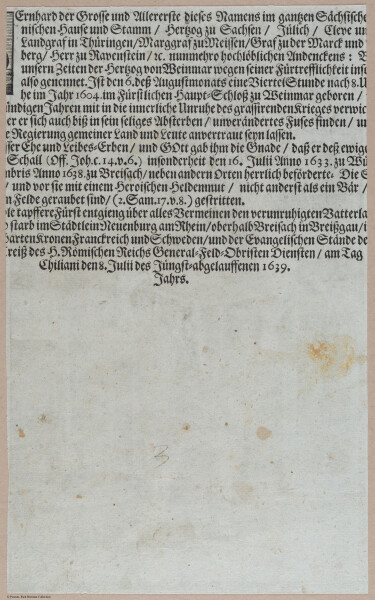 Ernhard der Grosse und Allererste dieses Namens im gantzen Sächsische
nischen Hause und Stamm / Hertzog zu Sachsen / Jülich / Cleve un
Landgraf in Thüringen / Marggraf zu Meissen / Graf zu der Marck und
berg / Herr zu Ravenstein / ꝛc. nunmehro hochlöblichen Andenckens :
unsern Zeiten der Hertzog von Weinmar wegen seiner Fürtrefflichkeit ins
also genennet. Ist den 6. deß Augustmonats eine Viertel Stunde nach 8. U
he im Jahr 1604. im Fürstlichen Haupt-Schloß zu Weinmar geboren /
ändigen Jahren mit in die innerliche Unruhe des grassirenden Krieges
er er sich auch biß in sein seliges Absterben / unverändertes Fuses finden / un
t Regierung gemeiner Land und Leute anvertraut seyn lassen.
sser Ehe und Leibes-Erben / und Gott gab ihm die Gnade / daß er deß ewige
Schall (Off. Joh. c. 14. v. 6.) insonderheit den 16. Julii Anno 1633. zu Wü
mbris Anno 1638. zu Breisach / neben andern Orten herrlich beförderte.
/ und vor sie mit einem Heroischen Heldenmut / nicht anderst als ein Bär /
n Felde geraubet sind / (2. Sam. 17. v. 8.) gestritten.
le tapffere Fürst entgieng über alles Vermeinen den verunruhigten Vatterla
o starb im Städtlein Neuenburg am Rhein / oberhalb Breisach in Breißgau / i
barten Kronen Franckreich und Schweden / und der Evangelischen Stände de
Creiß des H. Römischen Reichs General-Feld-Obristen Diensten / am Tag
Chiliani den 8. Julii des Jüngst-abgelauffenen 1639.
Jahrs.